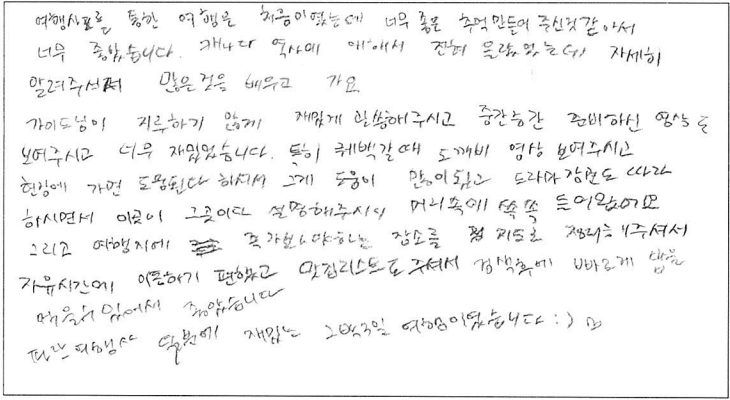 여행사를 통한 여행은 처음이었는데 너무 좋은 추억 만들어 주신것 같아서
너무 좋았습니다. 캐나다 역사에 대해서 전혀 몰랐었는데 자세히
알려주셔서 많은 것을 배우고 가요
가이드님이 지루하지 않게 재밌게 말씀해주시고 중간중간 준비하신 영상도
보여주시고 너무 재밌었습니다. 특히 퀘벡갈때 도깨비 영상 보여주시고
현장에 가면 도움된다 하셔서 그게 도움이 많이 됐고 드라마 장면도 따라
하시면서 이곳이 그곳이다 설명해주시니 머리속에 쏙쏙 들어왔어요
그리고 여행지에 꼭 가보아야하는 장소를 지도로 정리해주셔서
자유시간에 이동하기 편했고 맛집리스트도 주셔서 검색후에 빠르게 밥을
먹을수 있어서 좋았습니다
파란여행사 덕분에 재밌는 2박3일 여행이었습니다 :)